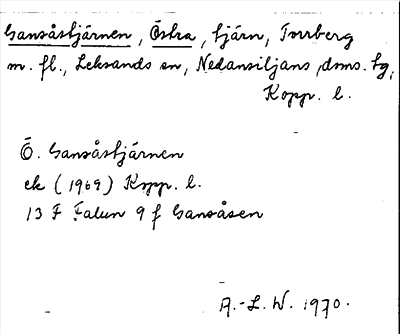 Gansåstjärnen, Östra, tjärn, Torrberg
m. fl., Leksands sn, Nedansiljans doms. tg,
Kopp. l.
Ö. Gansåstjärnen
ek (1969) Kopp. l.
13 F Falun 9 f Gansåsen
A.-L. W. 1970.